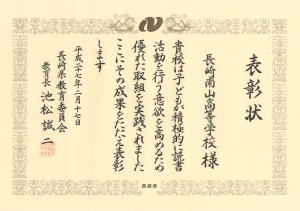 表彰状
長崎南山高等学校 様
貴校は子どもが積極的に読書
活動を行う意欲を高めるため
優れた取組を実践されました
ここにその成果をたたえ表彰
します
平成二十七年二月十七日
長崎県教育委員会
教育長 池松誠二